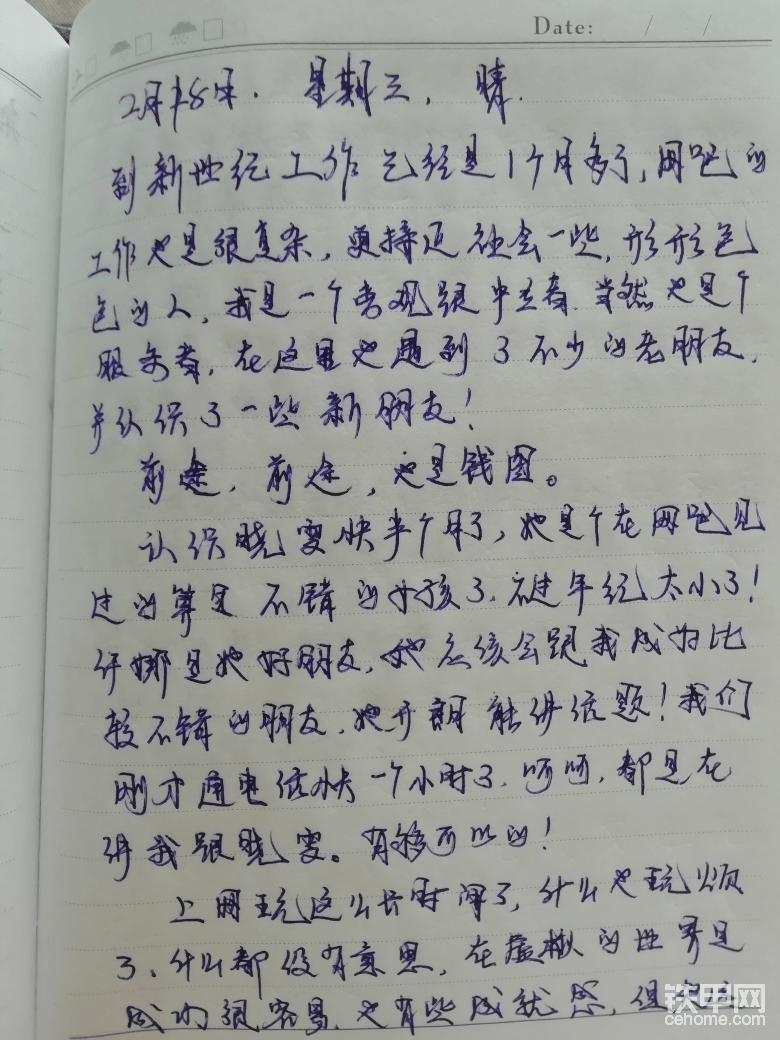 Date: / /
2月18日. 星期三, 晴.
到新世纪工作已经是1个月多了, 网吧的
工作也是很复杂, 更接近社会一些, 形形色
色的人, 我是一个客观跟中立者. 当然也是个
服务者, 在这里也遇到了不少的老朋友,
并认识了一些新朋友!
前途, 前途, 也是钱图。
认识晓雯快半个月了, 她是个在网吧见
过的算是不错的女孩了. 年纪太小了!
娜是她好朋友, 她应该会跟我成为比
较不错的朋友, 她开朗能讲话题! 我们
刚才通电话快一个小时了. 呵呵, 都是在
讲我跟晓雯。有够可以的!
上网玩这么长时间了, 什么也玩烦
了, 什么都没有意思, 在虚拟的世界是
成功很容易, 也有些成就感, 但
铁甲网
cehome.com